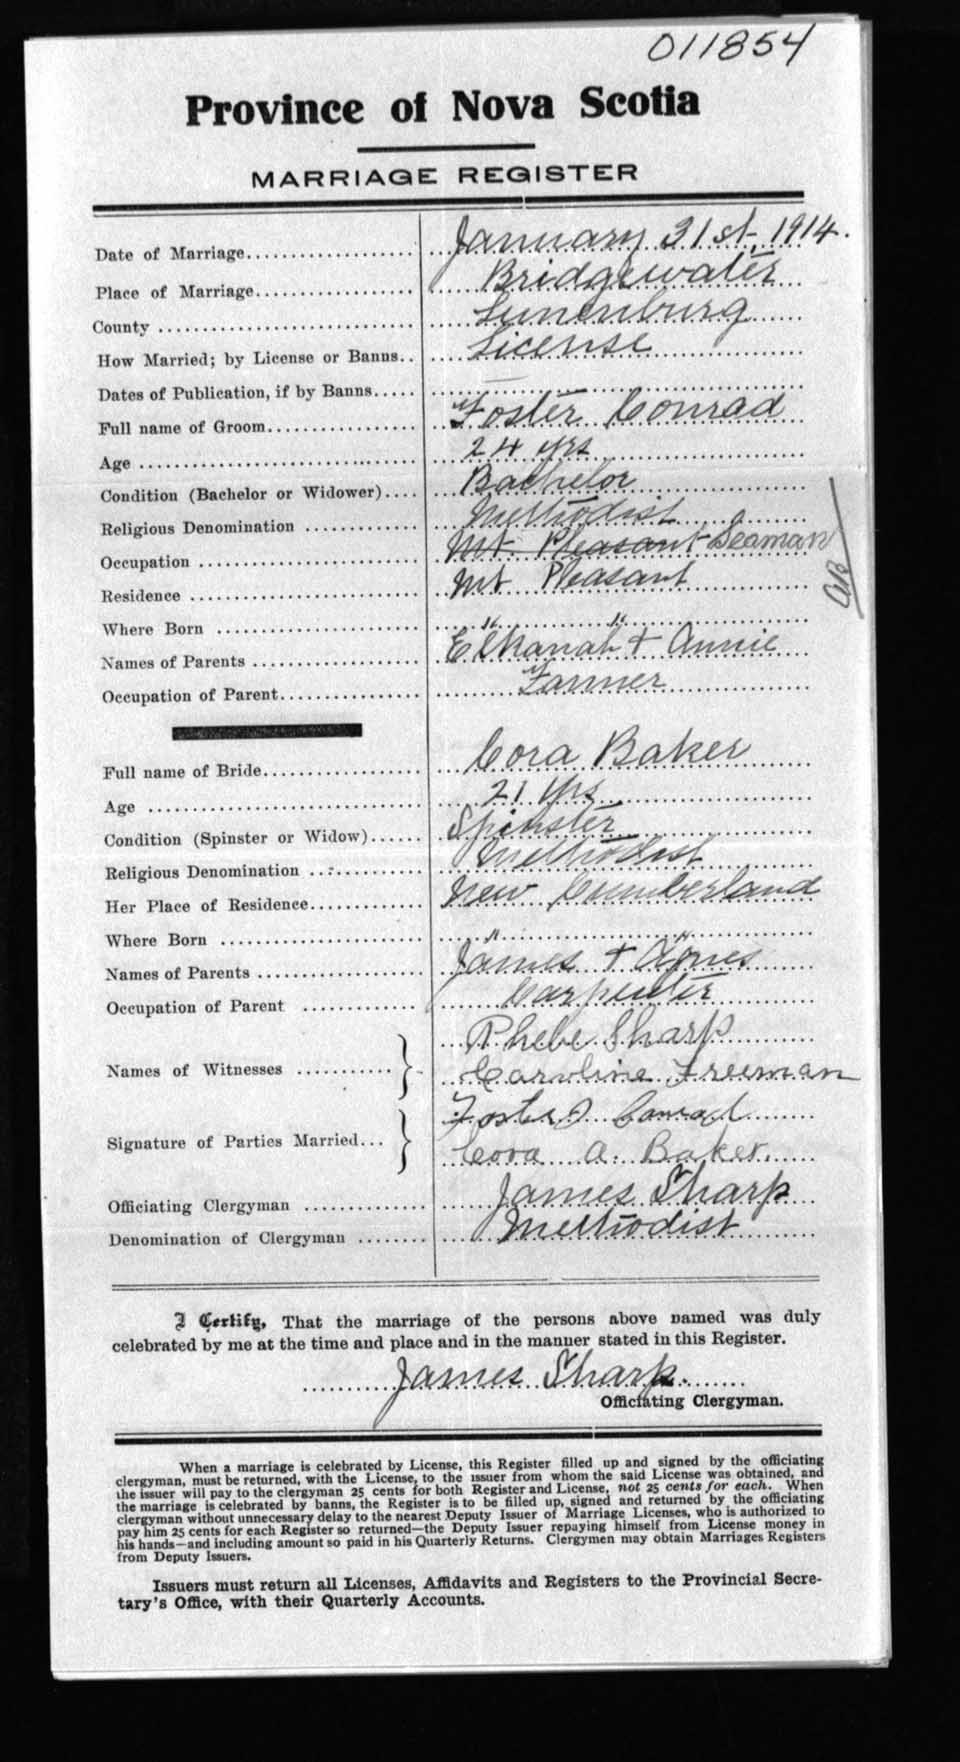 011854
Province of Nova Scotia
MARRIAGE REGISTER
Date of Marriage.................... January 31st, 1914.
Place of Marriage.................. Bridgewater
County ............................. Lunenburg
How Married; by License or Banns.. License
Dates of Publication, if by Banns..... —
Full name of Groom................. Foster Conrad
Age ................................ 24 yrs
Condition (Bachelor or Widower).... Bachelor
Religious Denomination ............. Methodist
Occupation ......................... Mt. Pleasant Seaman
Residence .......................... Mt Pleasant
AB
Where Born ....................... " "
Names of Parents ................... Elkanah + Annie
Occupation of Parent................ Farmer
Full name of Bride.................. Cora Baker
Age ................................ 21 yrs
Condition (Spinster or Widow)...... Spinster
Religious Denomination ............. Methodist
Her Place of Residence............. New Cumberland
Where Born ....................... " "
Names of Parents ................... James + Agnes
Occupation of Parent ............. Carpenter
Phebe Sharp
Names of Witnesses ........... Caroline Freeman
Foster Conrad
Signature of Parties Married... Cora A. Baker.
Officiating Clergyman .............. James Sharp
Denomination of Clergyman ........ Methodist
I Certify, That the marriage of the persons above named was duly
celebrated by me at the time and place and in the manner stated in this Register.
James Sharp.
Officiating Clergyman.
When a marriage is celebrated by License, this Register filled up and signed by the officiating
clergyman, must be returned, with the License, to the issuer from whom the said License was obtained, and
the issuer will pay to the clergyman 25 cents for both Register and License, not 25 cents for each. When
the marriage is celebrated by banns, the Register is to be filled up, signed and returned by the officiating
clergyman without unnecessary delay to the nearest Deputy Issuer of Marriage Licenses, who is authorized to
pay him 25 cents for each Register so returned—the Deputy Issuer repaying himself from License money in
his hands—and including amount so paid in his Quarterly Returns. Clergymen may obtain Marriages Registers
from Deputy Issuers.
Issuers must return all Licenses, Affidavits and Registers to the Provincial Secre-
tary's Office, with their Quarterly Accounts.